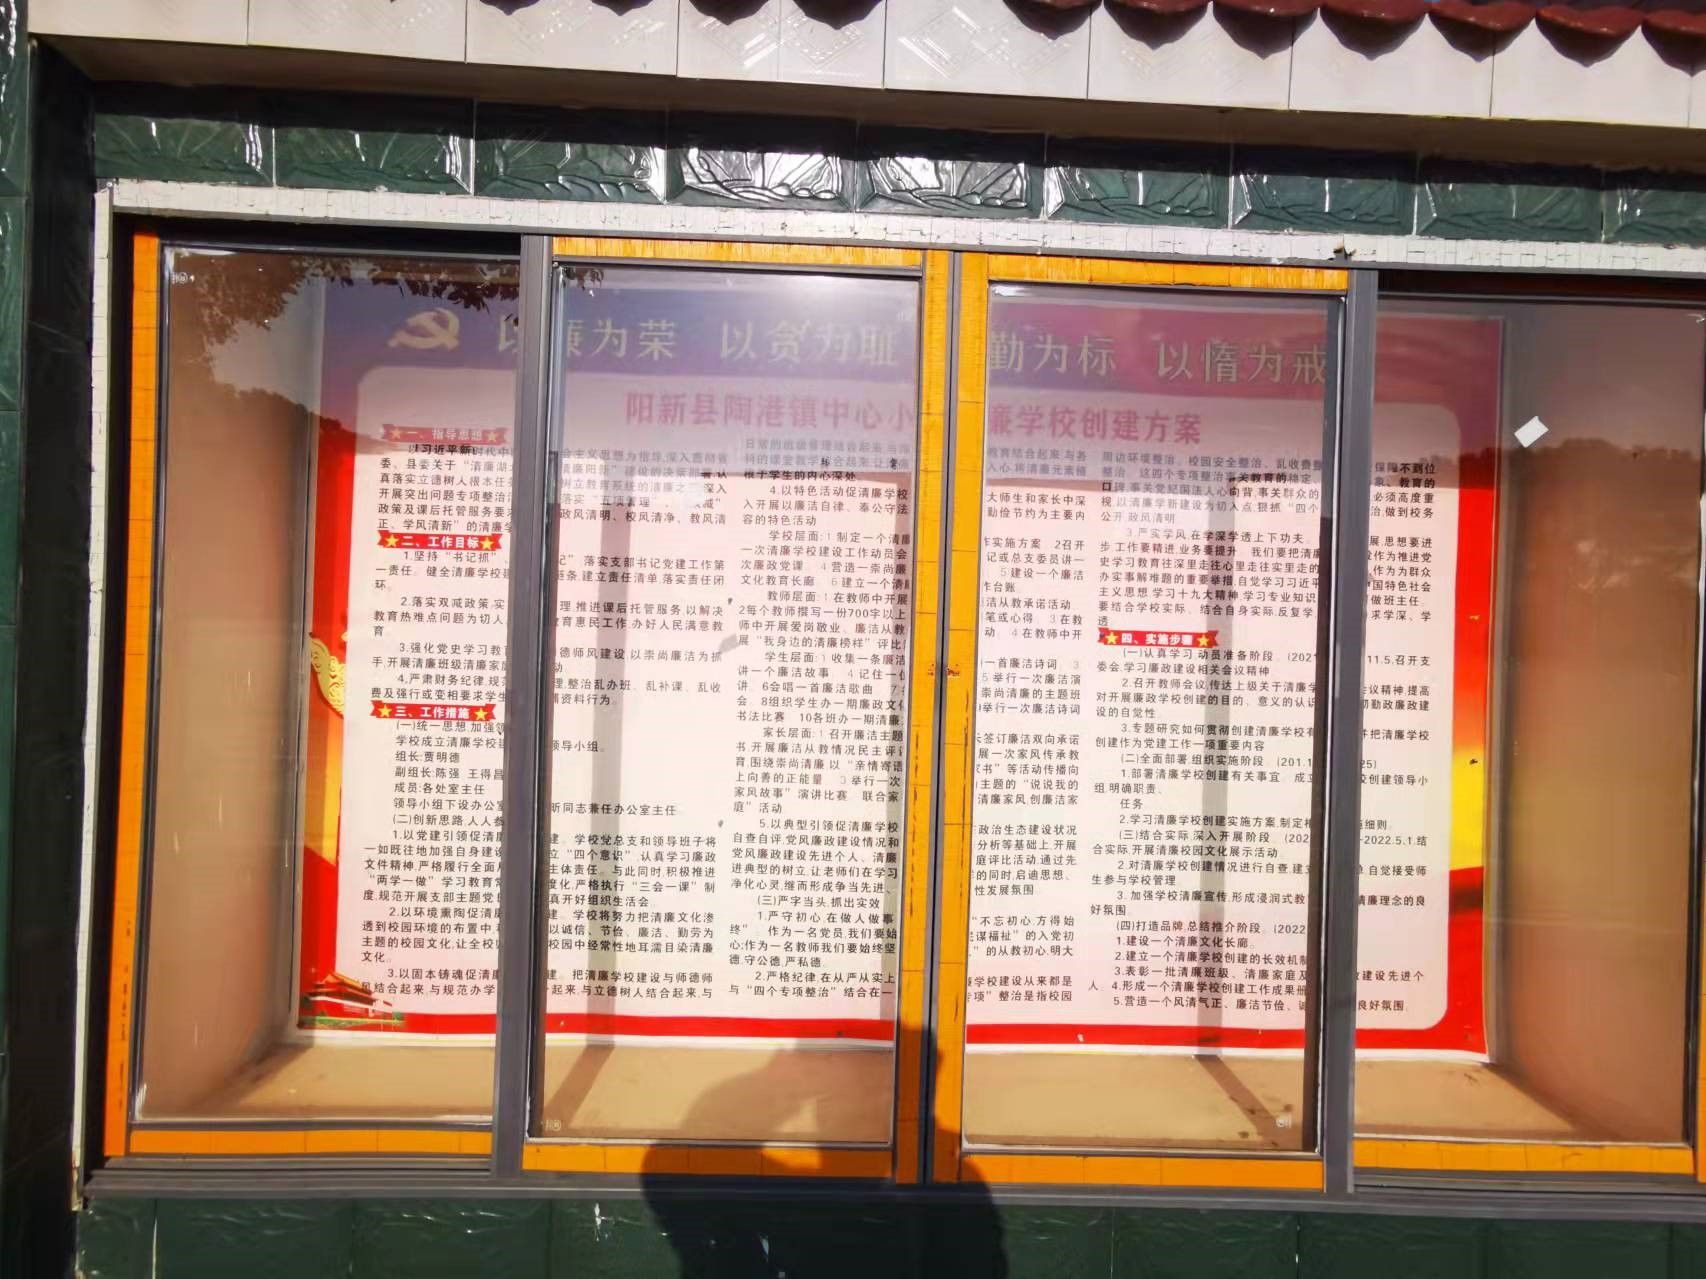 以廉为荣 以贪为耻 勤为标 以惰为戒
阳新县陶港镇中心小 廉学校创建方案
一、指导思想
以习近平新时代中 会主义思想为指导,深入贯彻省
委、县委关于“清廉湖 清廉阳新”建设的决策部署,认
真落实立德树人根本任 树立教育系统的清廉之 深入
开展突出问题专项整治 落实“五项管理”、 减”
政策及课后托管服务要 政风清明、校风清净、教风清
正、学风清新”的清廉学
二、工作目标
1.坚持“书记抓” 记”落实支部书记党建工作第
一责任。健全清廉学校建 链条,建立责任清单,落实责任闭
环。
2.落实双减政策,实 理,推进课后托管服务,以解决
教育热难点问题为切入 教育惠民工作,办好人民满意教
育。
3.强化党史学习教育 德师风建设,以崇尚廉洁为抓
手,开展清廉班级清廉家庭 动
4.严肃财务纪律,规范 理,整治乱办班、乱补课、乱收
费及强行或变相要求学生 辅资料行为。
三、工作措施
(一)统一思想,加强领
学校成立清廉学校建 领导小组。
组长:贾明德
副组长:陈强 王得昌
成员:各处室主任
领导小组下设办公室 昕同志兼任办公室主任。
(二)创新思路,人人参
1.以党建引领促清廉 建。学校党总支和领导班子将
一如既往地加强自身建设 立“四个意识”,认真学习廉政
文件精神,严格履行全面从 主体责任。与此同时,积极推进
“两学一做”学习教育常 度化,严格执行“三会一课”制
度,规范开展支部主题党日 真开好组织生活会。
2.以环境熏陶促清廉 建。学校将努力把清廉文化渗
透到校园环境的布置中, 以诚信、节俭、廉洁、勤劳为
主题的校园文化,让全校 校园中经常性地耳濡目染清廉
文化。
3.以固本铸魂促清廉 建。把清廉学校建设与师德师
风结合起来,与规范办学 起来,与立德树人结合起来,与
日常的班级管理结合起来,与 教育结合起来,与各
科的课堂教学结合起来,让清廉 入心,将清廉元素植
根于学生的内心深处。
4.以特色活动促清廉学校 大师生和家长中深
入开展以廉洁自律、奉公守法 勤俭节约为主要内
容的特色活动
学校层面:1.制定一个清廉 作实施方案 2召开
一次清廉学校建设工作动员会 记或总支委员讲一
次廉政党课 4.营造一崇尚廉 5建设一个廉洁
文化教育长廊 6建立一个清廉 作台账。
教师层面:1.在教师中开展 洁从教承诺活动。
2每个教师撰写一份700字以上 笔或心得 3在教
师中开展爱岗敬业、廉洁从教 动 4在教师中开
展“我身边的清廉榜样”评比
学生层面:1收集一条廉洁 一首廉洁诗词 3
讲一个廉洁故事 4记住一位 5举行一次廉洁演
讲 6会唱一首廉洁歌曲 7 崇尚清廉的主题班
会。8组织学生办一期廉政文化 举行一次廉洁诗词
书法比赛 10各班办一期清廉
家长层面:1召开廉洁主题 签订廉洁双向承诺
书,开展廉洁从教情况民主评议 展一次家风传承教
育,围绕崇尚清廉,以“亲情寄语 家书”等活动传播向
上向善的正能量 3举行一次 主题的“说说我的
家风故事”演讲比赛 联合家 清廉家风,创廉洁家
庭”活动
5.以典型引领促清廉学校 政治生态建设状况
自查自评,党风廉政建设情况和 分析等基础上,开展
党风廉政建设先进个人、清廉 庭评比活动,通过先
进典型的树立,让老师们在学习 的同时,启迪思想、
净化心灵,继而形成争当先进、 性发展氛围
(三)严字当头,抓出实效
1.严守初心,在做人做事 “不忘初心,方得始
终”。作为一名党员,我们要始 谋福祉”的入党初
心;作为一名教师我们要始终坚 ”的从教初心,明大
德,守公德,严私德。
2.严格纪律,在从严从实上 廉学校建设从来都是
与“四个专项整治”结合在一 专项”整治是指校园
周边环境整治、校园安全整治、乱收费整 保障不到位
整治 这四个专项整治事关教育的稳定、 象、教育的
口碑,事关党纪国法人心向背,事关群众的 必须高度重
视,以清廉学新建设为切入点,狠抓“四个 治,做到校务
公开,政风清明。
3.严实学风,在学深学透上下功夫。 展,思想要进
步,工作要精进,业务要提升。我们要把清廉 作为推进党
史学习教育往深里走往心里走往实里走的 作为为群众
办实事解难题的重要举措,自觉学习习近平 中国特色社会
主义思想,学习十九大精神,学习专业知识 时做班主任。
要结合学校实际、结合自身实际,反复学, 求学深、学
透
四、实施步骤
(一)认真学习,动员准备阶段。(2021 11.5,召开支
委会,学习廉政建设相关会议精神
2.召开教师会议,传达上级关于清廉学 会议精神,提高
对开展廉政学校创建的目的、意义的认识 彻勤政廉政建
设的自觉性
3.专题研究如何贯彻创建清廉学校有 并把清廉学校
创建作为党建工作一项重要内容
(二)全面部署,组织实施阶段 (201.1 25)
1.部署清廉学校创建有关事宜。成立 校创建领导小
组,明确职责、
任务。
2.学习清廉学校创建实施方案,制定相 施细则。
(三)结合实际,深入开展阶段。(202 -2022.5.1.结
合实际,开展清廉校园文化展示活动
2.对清廉学校创建情况进行自查,建立 单,自觉接受师
生参与学校管理
3.加强学校清廉宣传,形成浸润式教 清廉理念的良
好氛围
(四)打造品牌,总结推介阶段。(2022
1.建设一个清廉文化长廊。
2.建立一个清廉学校创建的长效机制
3.表彰一批清廉班级、清廉家庭及 政建设先进个
人 4.形成一个清廉学校创建工作成果册
5.营造一个风清气正、廉洁节俭、诚 良好氛围。